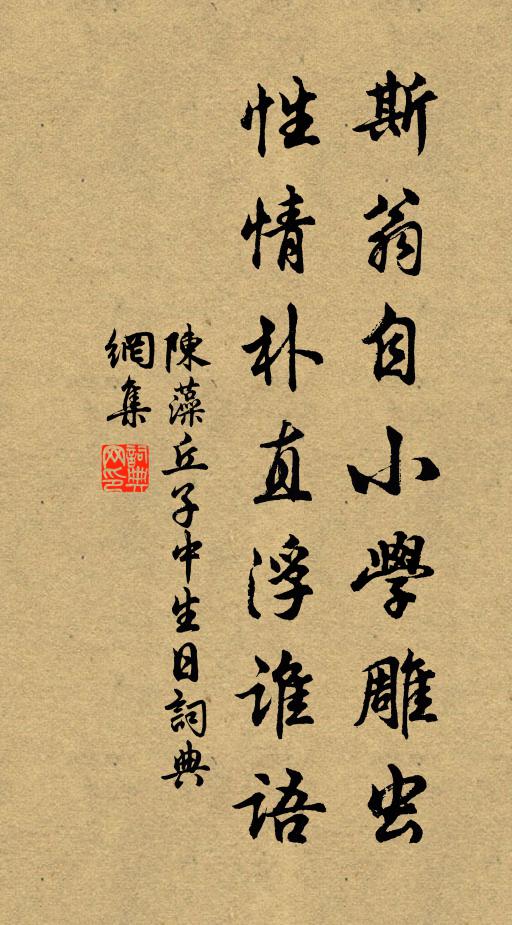 斯翁自小學雕虫
性情朴直浮誰語
陳藻丘子中生日詞典
網集
詞典
网印